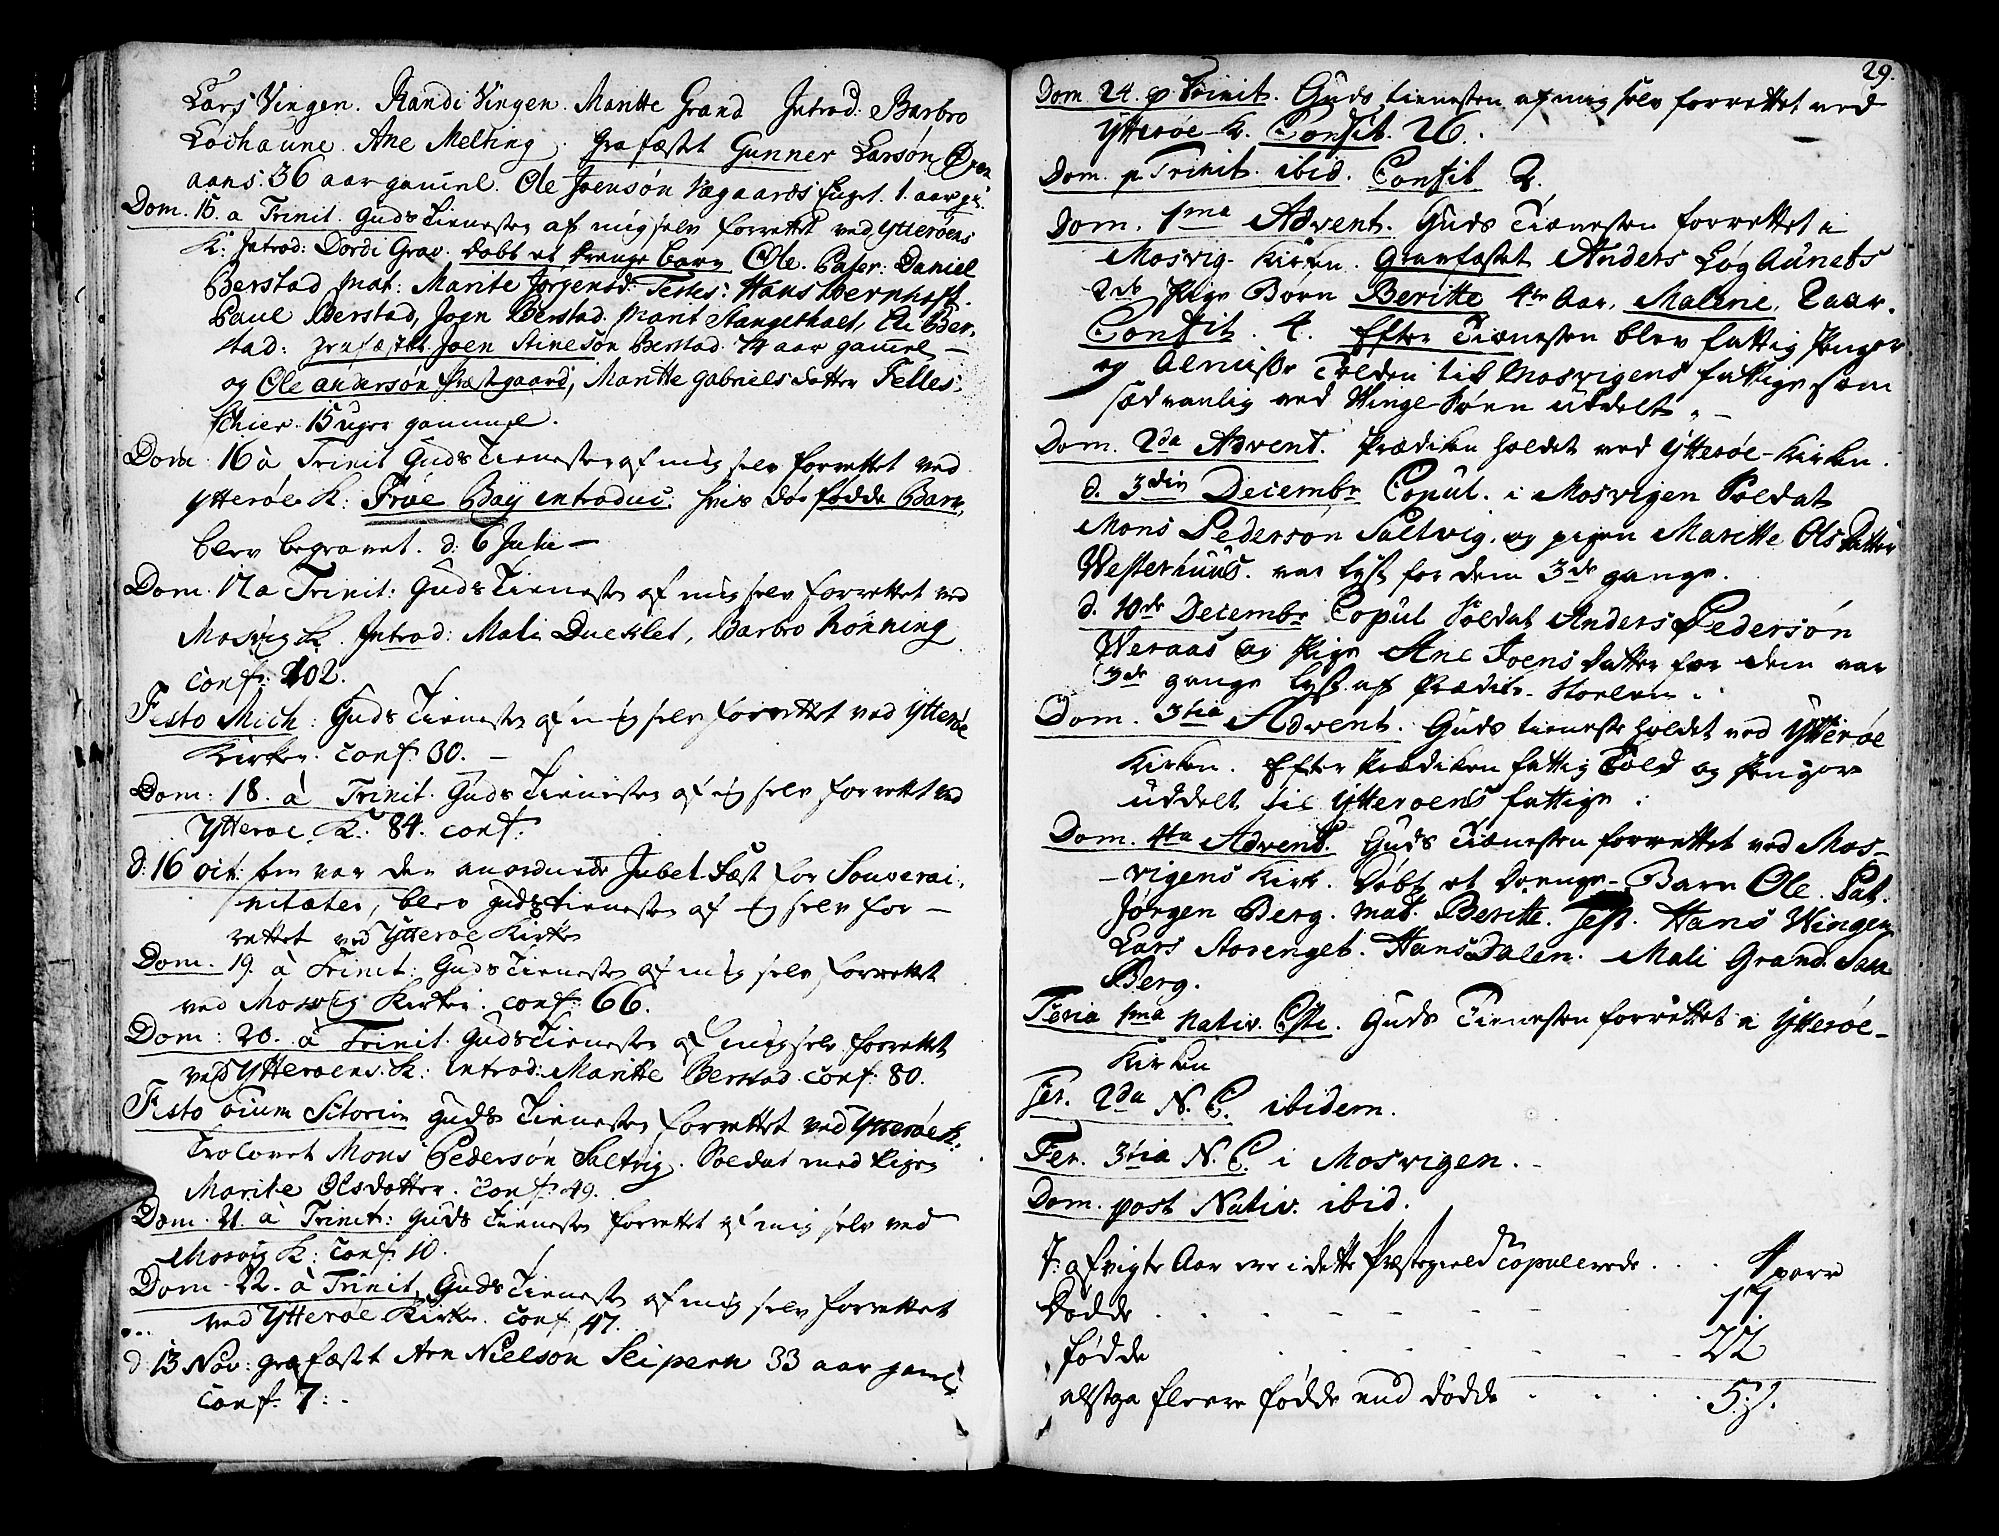 Lars Vingen. Randi Vingen. Maritte Grand Introd. Barbro
Lochaune. Ane Melting. Grafæstet Gunner Larsøn
aans. 36 aar gam̄el. Ole Joensøn Vægaards 1. aar
Dom. 15. a Trinit. Guds Tienesten af mig selv forrettet ved Ytterøens
K: Introd: Dordi Grav. Døbt et drenge barn Ole. Pater: Daniel
Berstad mat: Marite Jørgensd: Testes: Hans Bernhoft.
Paul Berstad, Joen Berstad. Marit Stangetholt, Eli Ber-
stad: grafæstet Joen Stinesøn Berstad 74 aar gam̄el —
og Ole andersøn Præstgaard, Maritte Gabriels datter Felles-
schier. 15 uger gammel.
Dom: 16 à Trinit Guds Tienesten af mig selv forrettet ved
Ytterøe K: Froe Baÿ introduc. hvis død fødde Barn,
blev begravet. d: 6 Julii —
Dom. 17 a Trinit: Guds Tienesten af mig selv forrettet ved
Mosvig K. Introd: Mali Dueklet, Barbro Rönning
conf: 102.
Festo Mich: Guds Tienesten af mig selv forrettet ved Ytterøe
Kirken. conf. 30. —
Dom: 18. à Trinit. Guds Tienesten af mig selv forrettet ved
Ytterøe K: 84. conf:
d: 16 oct: som var den anordnede Jubel-Fæst for Souverai-
nitæten, blev gudstienesten af mig selv for-
rettet ved Ytterøe Kirke
Dom. 19. à Trinit: Guds Tienesten af mig selv forrettet
ved Mosvig Kirke. conf: 66.
Dom: 20. à Trinit. Guds Tienesten af mig selv forrettet
ved Ytterøens K: introd: Maritte Berstad. conf: 80.
Festo oium Sctorum Guds Tienesten forrettet ved Ytterøe K:
Trolovet Mons Pedersøn Saltvig. Soldat med Pigen
Marite Olsdatter. conf: 49.
Dom. 21. à Trinit: Guds Tienesten forrettet af mig selv ved
Mosvig K: conf: 10.
Dom. 22. à Trinit. Guds Tienesten af mig selv forrettet
ved Ytterøe Kirke. conf. 47.
d: 13 Nov: grafæstet Arn Nielson Leipern 33 aar gaml
conf: 7:
29.
Dom 24. p Trinit. Guds tienesten af mig selv forrettet ved
Ytterøe K. Confit. 26.
Dom. p Trinit. ibid. Confit 2.
Dom. 1ma Advent. Guds Tienesten forrettet i
Mosvig-Kirken. Gravfæstet Anders Løgaunets
2de Pige Børn Beritte 4re Aar, Malene, 2 aar.
Confit. 4. Efter Tienesten blev fattig Penger
og Tolden til Mosvigens fattige som
sædvanlig ved Vinge Søen uddelt. —
Dom. 2da Advent. Prædiken holdet ved Ytterøe-Kirken.
d. 3die Decembr Copul. i Mosvigen Soldat
Mons Pedersøn Saltvig, og pigen Maritte Olsdatter
Westerhuus. var lyst for dem 3de gange.
d. 10de Decembr Copul Soldat Anders Pedersøn
Weraas og Pige Ane Joens datter for dem var
3de gange lyst af Prædike-Stoelen.
Dom. 3tia Advent. Guds tieneste holdet ved Ytterøe
Kirken. Efter Prædiken fattig Told og Penger
uddelt til Ytterøens fattige.
Dom. 4ta Advent. Guds Tienesten forrettet ved Mos-
vigens Kirk. Døbt et drenge-Barn Ole. Pat.
Jørgen Berg. mat. Beritte. Test. Hans Wingen
Lars Storenget. Hans Dalen. Mali Grand. Sara
Berg.
Feria 1ma Nativ. Csti. Guds Tienesten forrettet i Ytterøe-
Kirken
Fer. 2da N. C. ibidem.
Fer. 3tia N. C. i Mosvigen.
Dom. post Nativ. ibid.
I afvigte Aar ere i dette Præstegield copulerede . . . 4 parr
Dødde . . . 17.
fødde . . . 22
altsaa fleere fødde end dødde . . . 5.